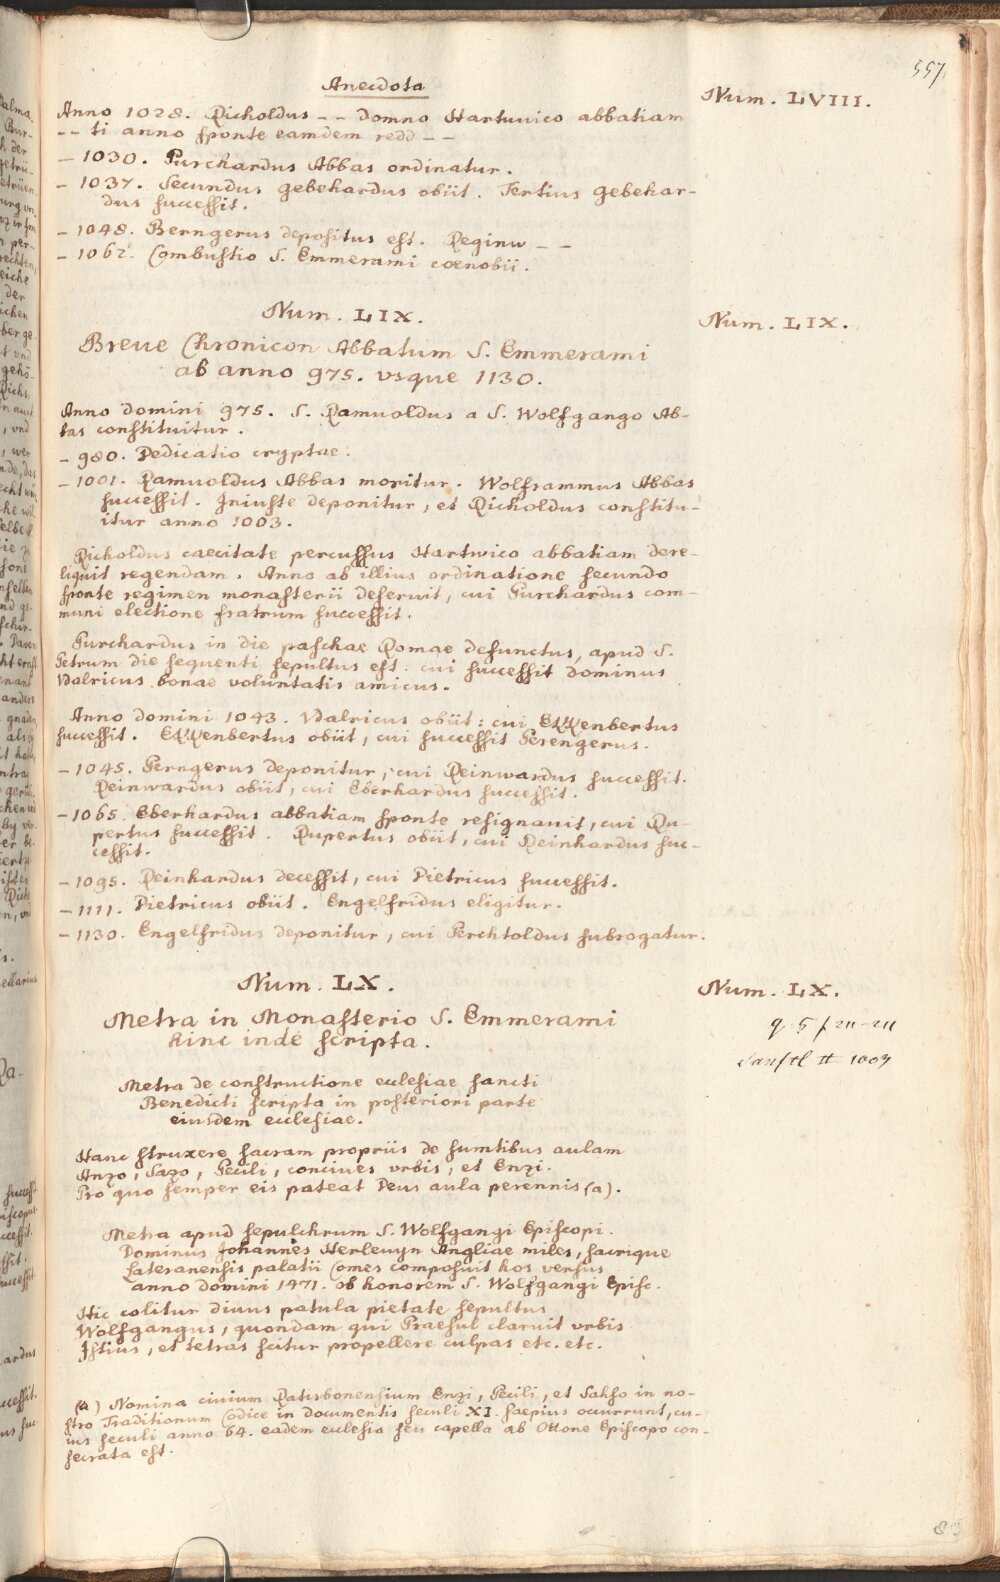 557
Anecdota
Num. LVIII.
Anno 1028. Richoldus -- Domno Hartuuico abbatiam
-- ti anno sponte eamdem redd --
- 1030. Purchardus Abbas ordinatur.
- 1037. Secundus gebehardus obiit. Tertius gebehar-
dus successit.
- 1048. Berngerus depositus est. Reginw --
- 1062. Combustio S. Emmerami coenobii.
Num. LIX.
Num. LIX.
Breue Chronicon Abbatum S. Emmerami
ab anno 975. vsque 1130.
Anno domini 975. S. Ramuoldus a S. Wolfgango Ab-
bas constituitur.
- 980. Dedicatio cryptae.
- 1001. Ramuoldus Abbas moritur. Wolframmus Abbas
successit. Iniuste deponitur, et Richoldus constitu-
itur anno 1003.
Richoldus caecitate percussus Hartwico abbatiam dere-
liquit regendam. Anno ab illius ordinatione secundo
sponte regimen monasterii deseruit, cui Purchardus com-
muni electione fratrum successit.
Purchardus in die paschae Romae defunctus, apud S.
Petrum die sequenti sepultus est. cui successit dominus
Vdalricus bonae voluntatis amicus.
Anno domini 1043. Vdalricus obiit: cui Ekkenbertus
successit. Ekkenbertus obiit, cui successit Perengerus.
- 1045. Perngerus deponitur, cui Reinwardus successit.
Reinwardus obiit, cui Eberhardus successit.
- 1065. Eberhardus abbatiam sponte resignauit, cui Ru-
pertus successit. Rupertus obiit, cui Reinhardus suc-
cessit.
- 1095. Reinhardus decessit, cui Pietricus successit.
- 1111. Pietricus obiit. Engelfridus eligitur.
- 1130. Engelfridus deponitur, cui Perchtoldus subrogatur.
Num. LX.
Num. LX.
Metra in Monasterio S. Emmerami
hinc inde scripta.
Metra de constructione ecclesiae sancti
Benedicti scripta in posteriori parte
eiusdem ecclesiae.
Hanc struxere sacram propriis de sumtibus aulam
Anzo, Sazo, Pecili, conciues vrbis, et Enzi.
Pro quo semper eis pateat Deus aula perennis (a).
Metra apud sepulchrum S. Wolfgangi Episcopi.
Dominus Johannes Herlewyn Angliae miles, sacrique
Lateranensis palatii Comes composuit hos versus
anno domini 1471. ob honorem S. Wolfgangi Episc.
Hic colitur diuus patula pietate sepultus
Wolfgangus, quondam qui Praesul claruit vrbis
Istius, et tetras scitur propellere culpas etc. etc.
(a) Nomina ciuium Ratisbonensium Enzi, Pecili, et Sahso in no-
stro Traditionum Codice in documentis seculi XI. saepius occurrunt, cu-
ius seculi anno 64. eadem ecclesia seu capella ab Ottone Episcopo con-
secrata est.